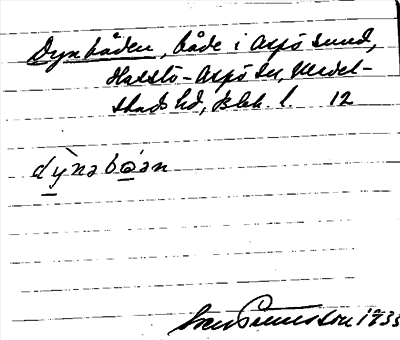 Dynbåden, både i Aspö sund,
Hasslö-Aspö sn, Medel-
stads hd, Blek. l. 12
dỳnəbǫ̇ən
Sven Svensson 1935